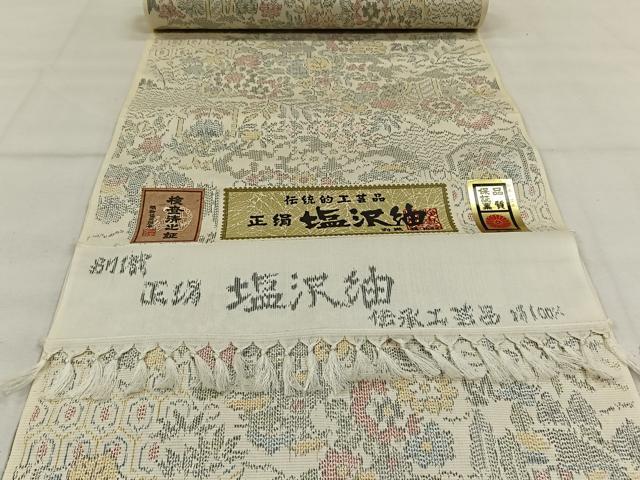 伝統的工芸品
正絹 塩沢紬
検査済之証
品質
保証
別織
正絹 塩沢紬
伝承工芸品 絹100%